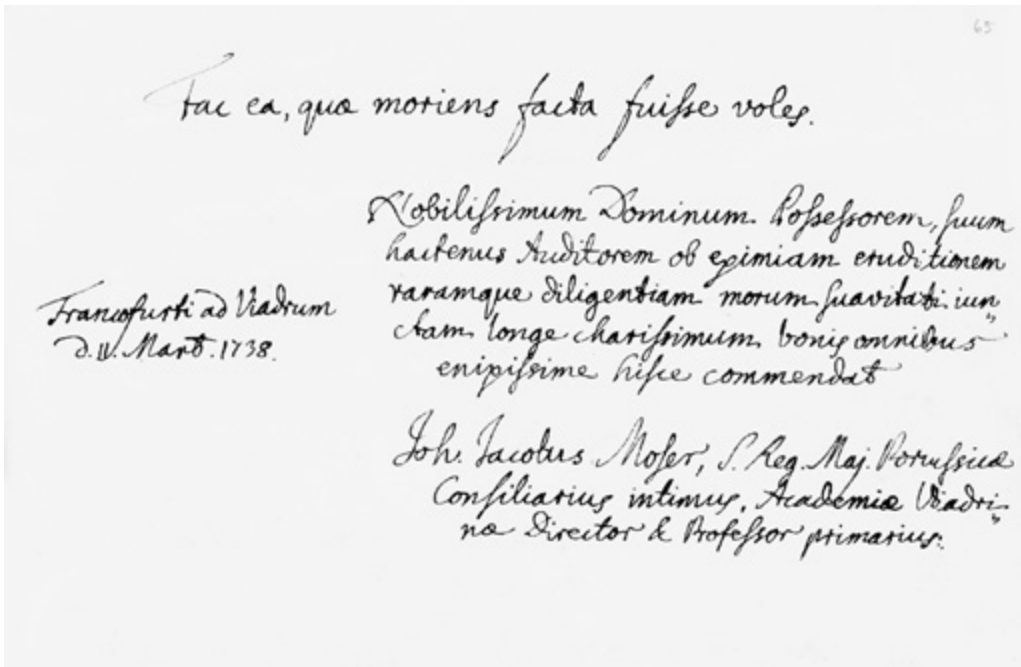 65
Fac ea, quæ moriens facta fuisse voles.
Nobilissimum Dominum Possessorem, suum
hactenus Auditorem ob eximiam eruditionem
raramque diligentiam morum suavitati iun„
ctam longe charissimum bonis omnibus
enixissime hisce commendat
Francofurti ad Viadrum
d. IV. Mart. 1738.
Joh. Jacobus Moser, S. Reg. Maj. Porussicæ
Consiliarius intimus, Academiæ Viadri„
næ Director & Professor primarius.